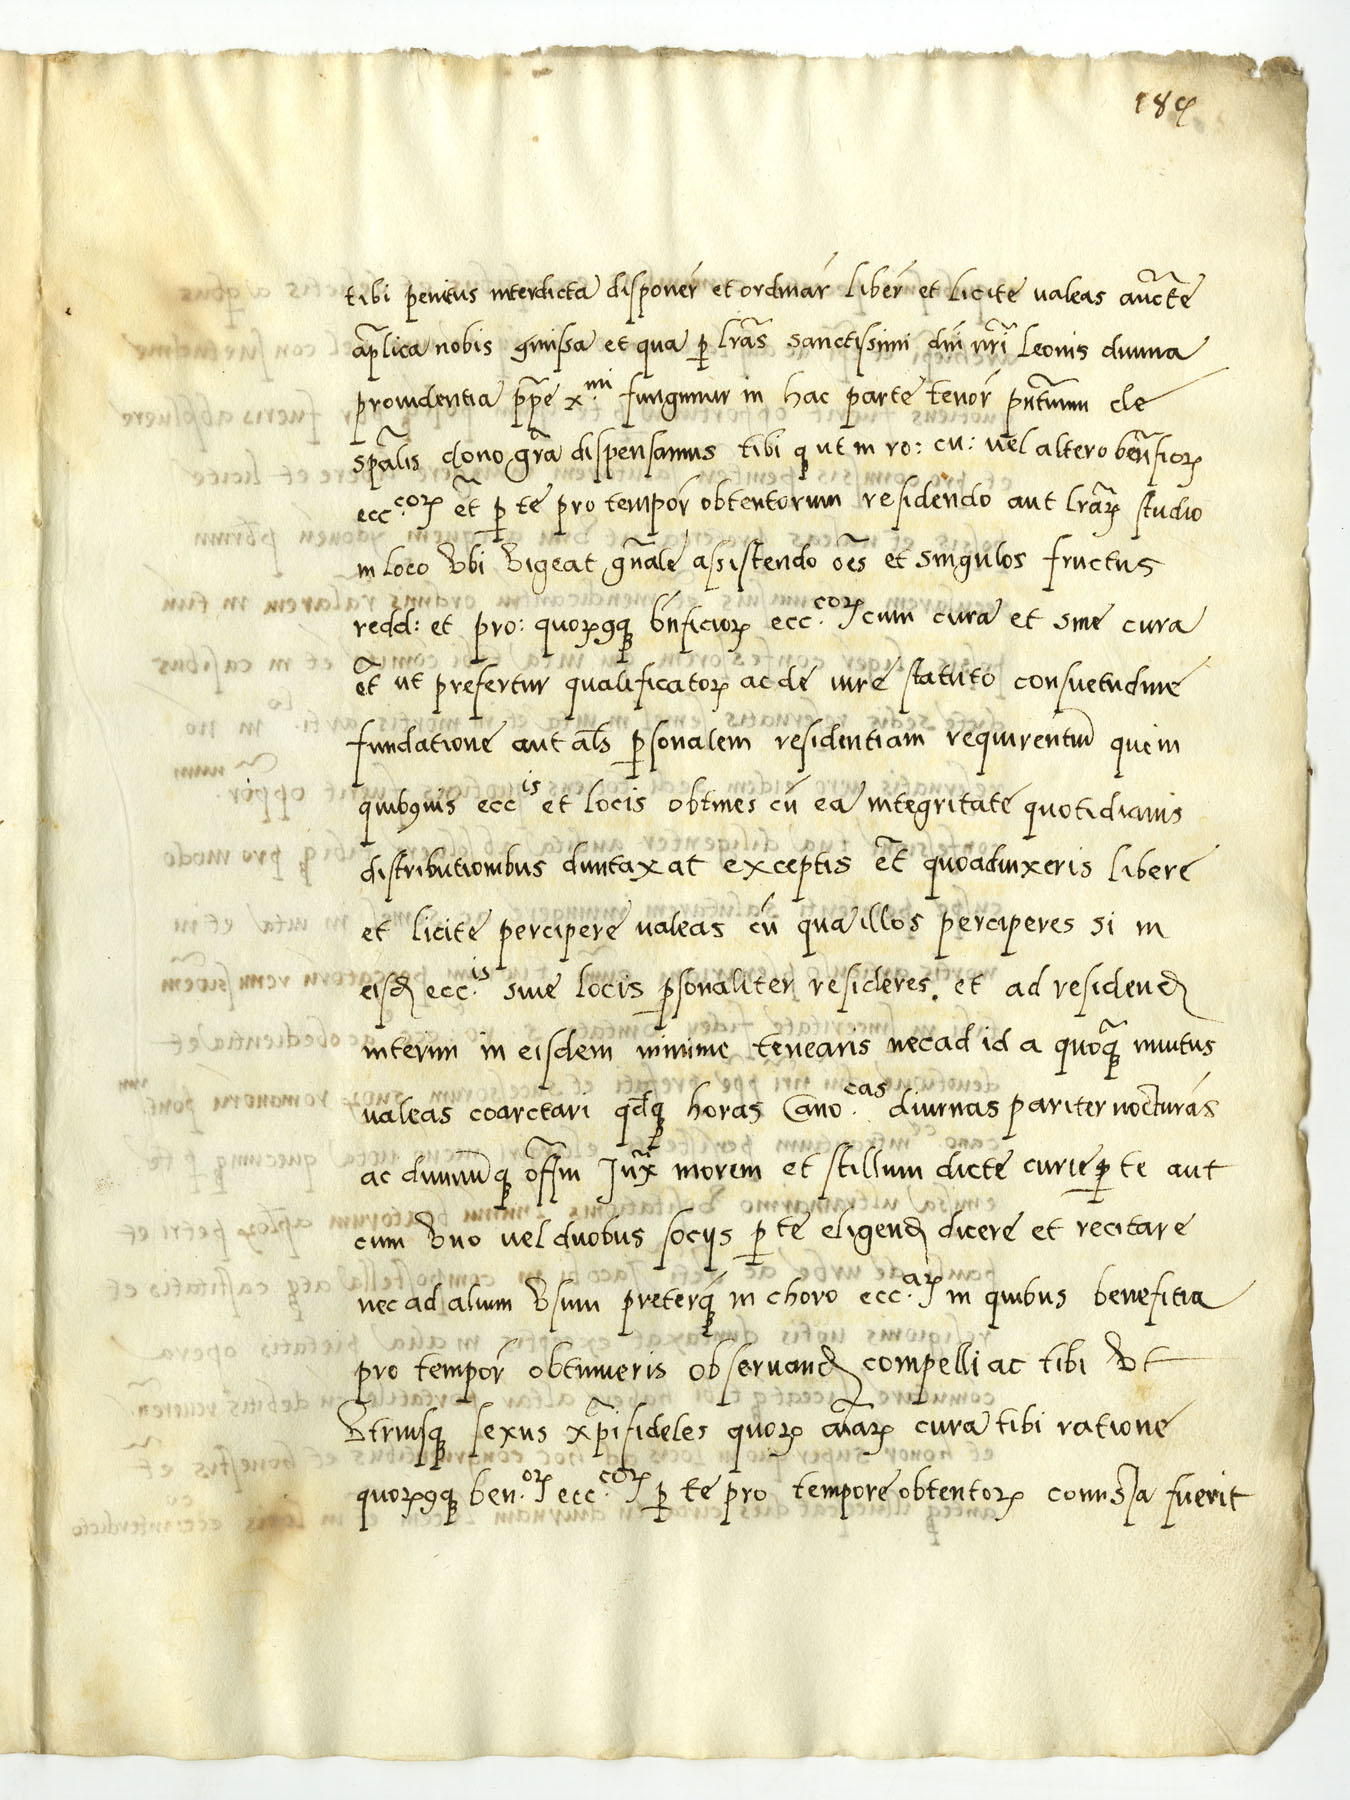 189
tibi penitus interdicta disponer̃ et ordinar̃ liber̃ et licite valeas auct̃e
ap̃lica nobis ꝯmissa et qua ꝑ lr̃as sanctissimi dñi nr̃i Leonis divina
providentia pp̃e x.mi fungimur in hac parte tenor̃ pñtium de
sp̃alis dono gr̃a dispensamus tibi ꝙ ut in ro: cu: vel altero beñficioꝝ
ecc.coꝝ et̃ ꝑ te pro tempor̃ obtentorum residendo aut lr̃aꝝ studio
in loco Vbi Vigeat gñale assistendo oẽs et singulos fructus
redd: et pro: quoꝝꝯqꝫ bñficioꝝ ecc.coꝝ cum cura et sine cura
et̃ ut prefertur qualificatoꝝ ac de iure statuto consuetudine
fundatione aut al̃s ꝑsonalem residentiam requirentiũ que in
quibꝯuis ecc.is et locis obtines cũ ea integritate quotidianis
distributionibus duntaxat exceptis et̃ quoaduixeris libere
et licite percipere valeas cũ qua illos perciperes si in
eisđ ecc.is sive locis ꝑsonaliter resideres. et ad residenđ
interim in eisdem minime tenearis nec ad id a quoꝗ̃ invitus
valeas coarctari qđqꝫ horas Cano.cas diurnas pariter nocturnas
ac divinũqꝫ off̃m Jux̃ morem et stillum dicte curie ꝑ te aut
cum Vno vel duobus socijs ꝑ te eligenđ dicere et recitare
nec ad alium Vsum preterꝗ̃ in choro ecc.aꝝ in quibus benefitia
pro tempor̃ obtinueris observanđ compelli ac tibi Vt
Vtriusqꝫ sexus xp̃ifideles quoꝝ aĩaꝝ cura tibi ratione
quoꝝꝯqꝫ ben.oꝝ ecc.coꝝ ꝑ te pro tempore obtentoꝝ commissa fuerit